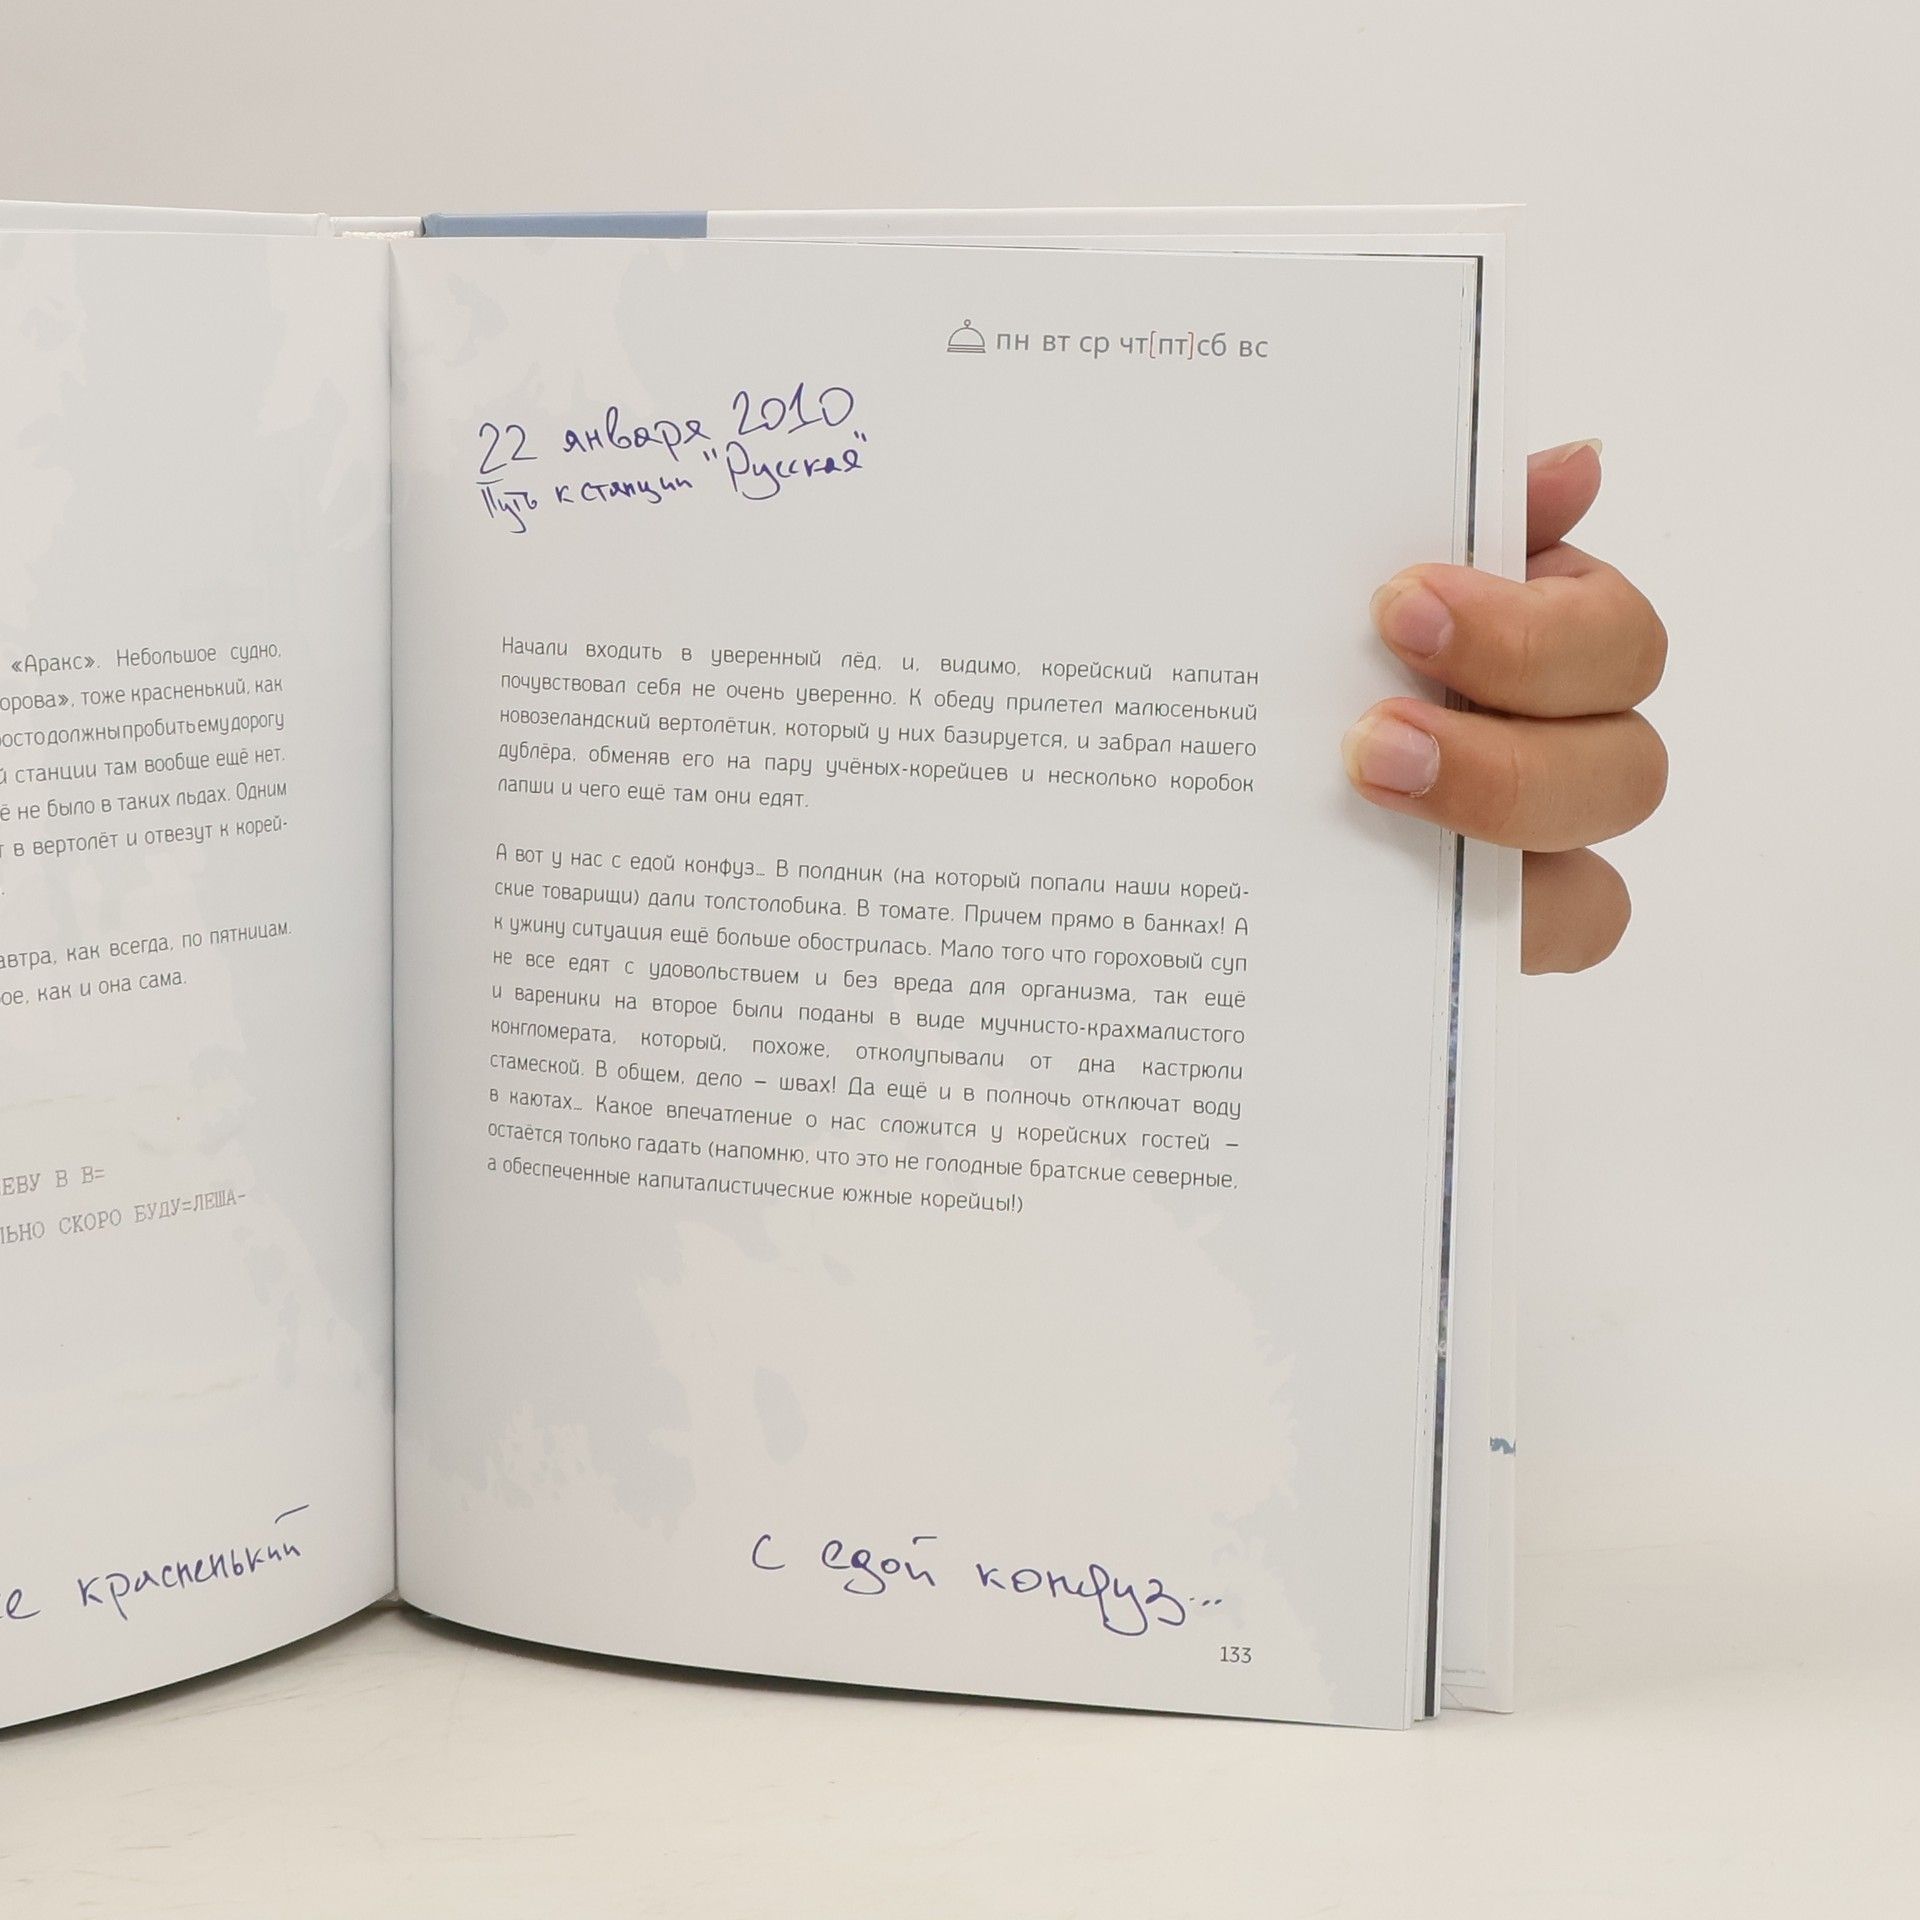 «Аракс». Небольшое судно,
орова», тоже красненький, как
осто должны пробить ему дорогу
й станции там вообще ещё нет.
ё не было в таких льдах. Одним
т в вертолёт и отвезут к корей-
автра, как всегда, по пятницам.
ое, как и она сама.
ЕВУ В В=
ЛЬНО СКОРО БУДУ=ЛЕША-
е красненький
пн вт ср чт[пт]сб вс
22 января 2010
Путь к станции "Русская"
Начали входить в уверенный лёд, и, видимо, корейский капитан
почувствовал себя не очень уверенно. К обеду прилетел малюсенький
новозеландский вертолётик, который у них базируется, и забрал нашего
дублёра, обменяв его на пару учёных-корейцев и несколько коробок
лапши и чего ещё там они едят.
А вот у нас с едой конфуз… В полдник (на который попали наши корей-
ские товарищи) дали толстолобика. В томате. Причем прямо в банках! А
к ужину ситуация ещё больше обострилась. Мало того что гороховый суп
не все едят с удовольствием и без вреда для организма, так ещё
и вареники на второе были поданы в виде мучнисто-крахмалистого
конгломерата, который, похоже, отколупывали от дна кастрюли
стамеской. В общем, дело – швах! Да ещё и в полночь отключат воду
в каютах… Какое впечатление о нас сложится у корейских гостей –
остаётся только гадать (напомню, что это не голодные братские северные,
а обеспеченные капиталистические южные корейцы!)
с едой конфуз...
133